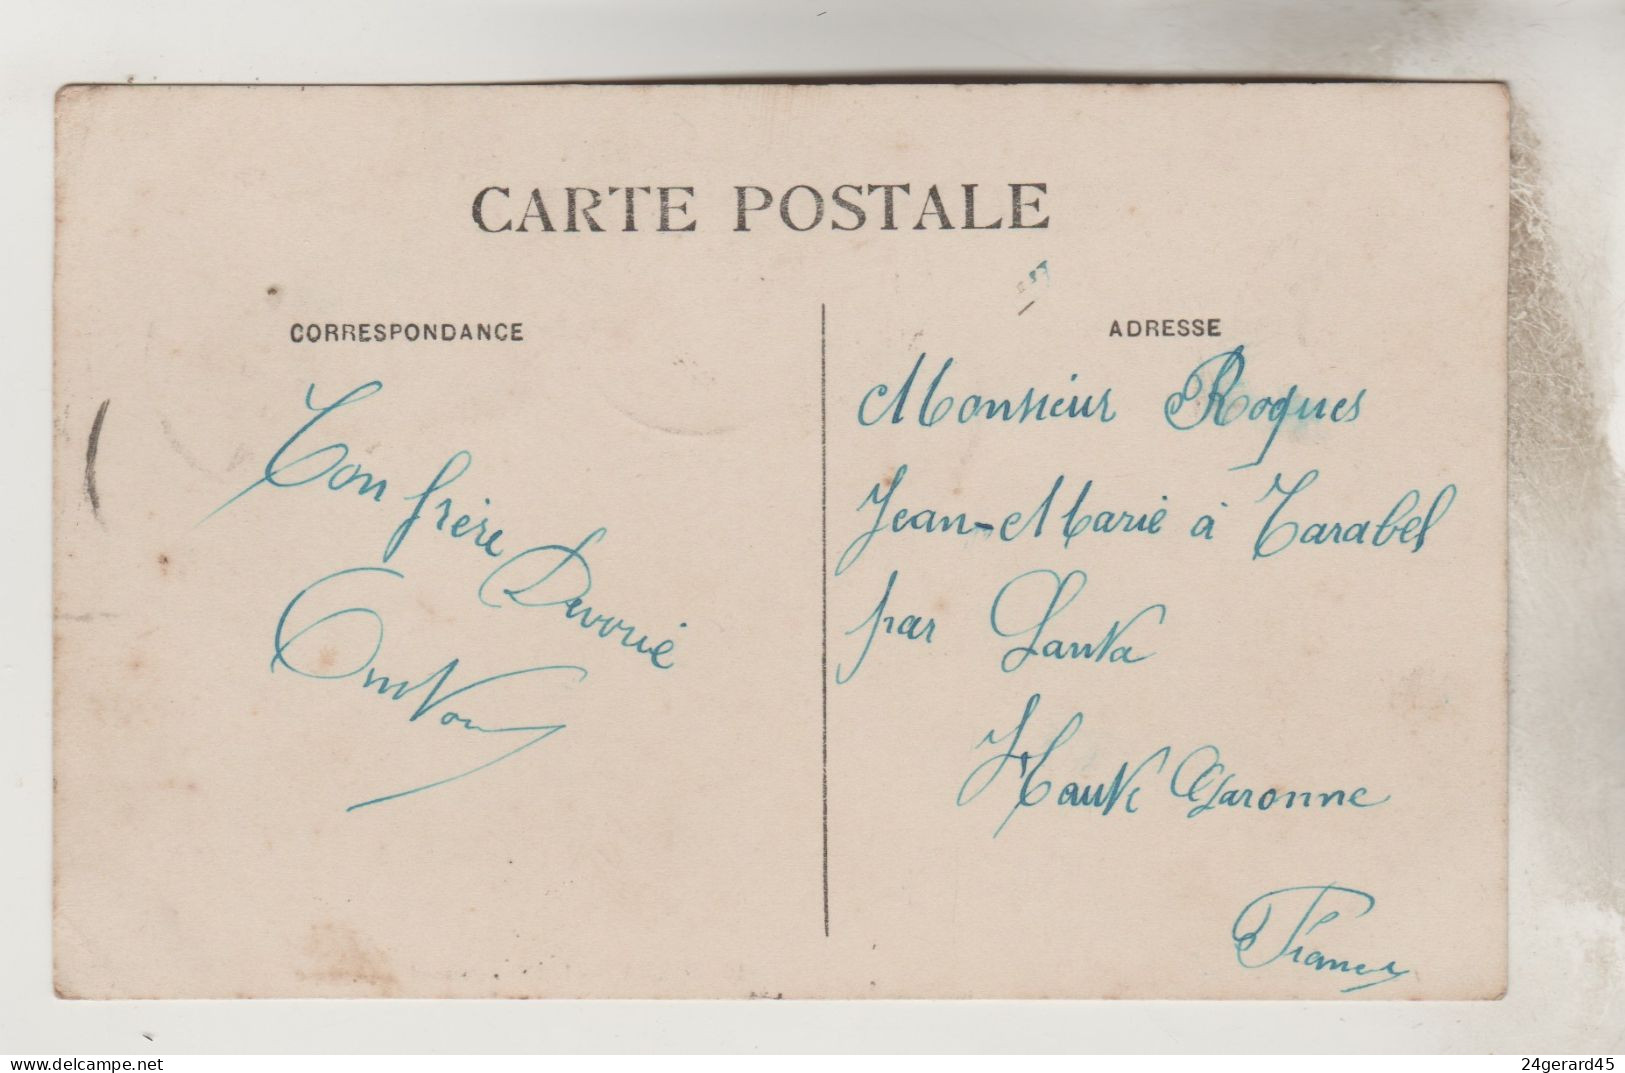 CARTE POSTALE
CORRESPONDANCE
Ton frère Dévoué
ADRESSE
Monsieur Roques
Jean-Marie à Tarabel
par Lanta
Haute Garonne
France
delcampe.net
24gerard45